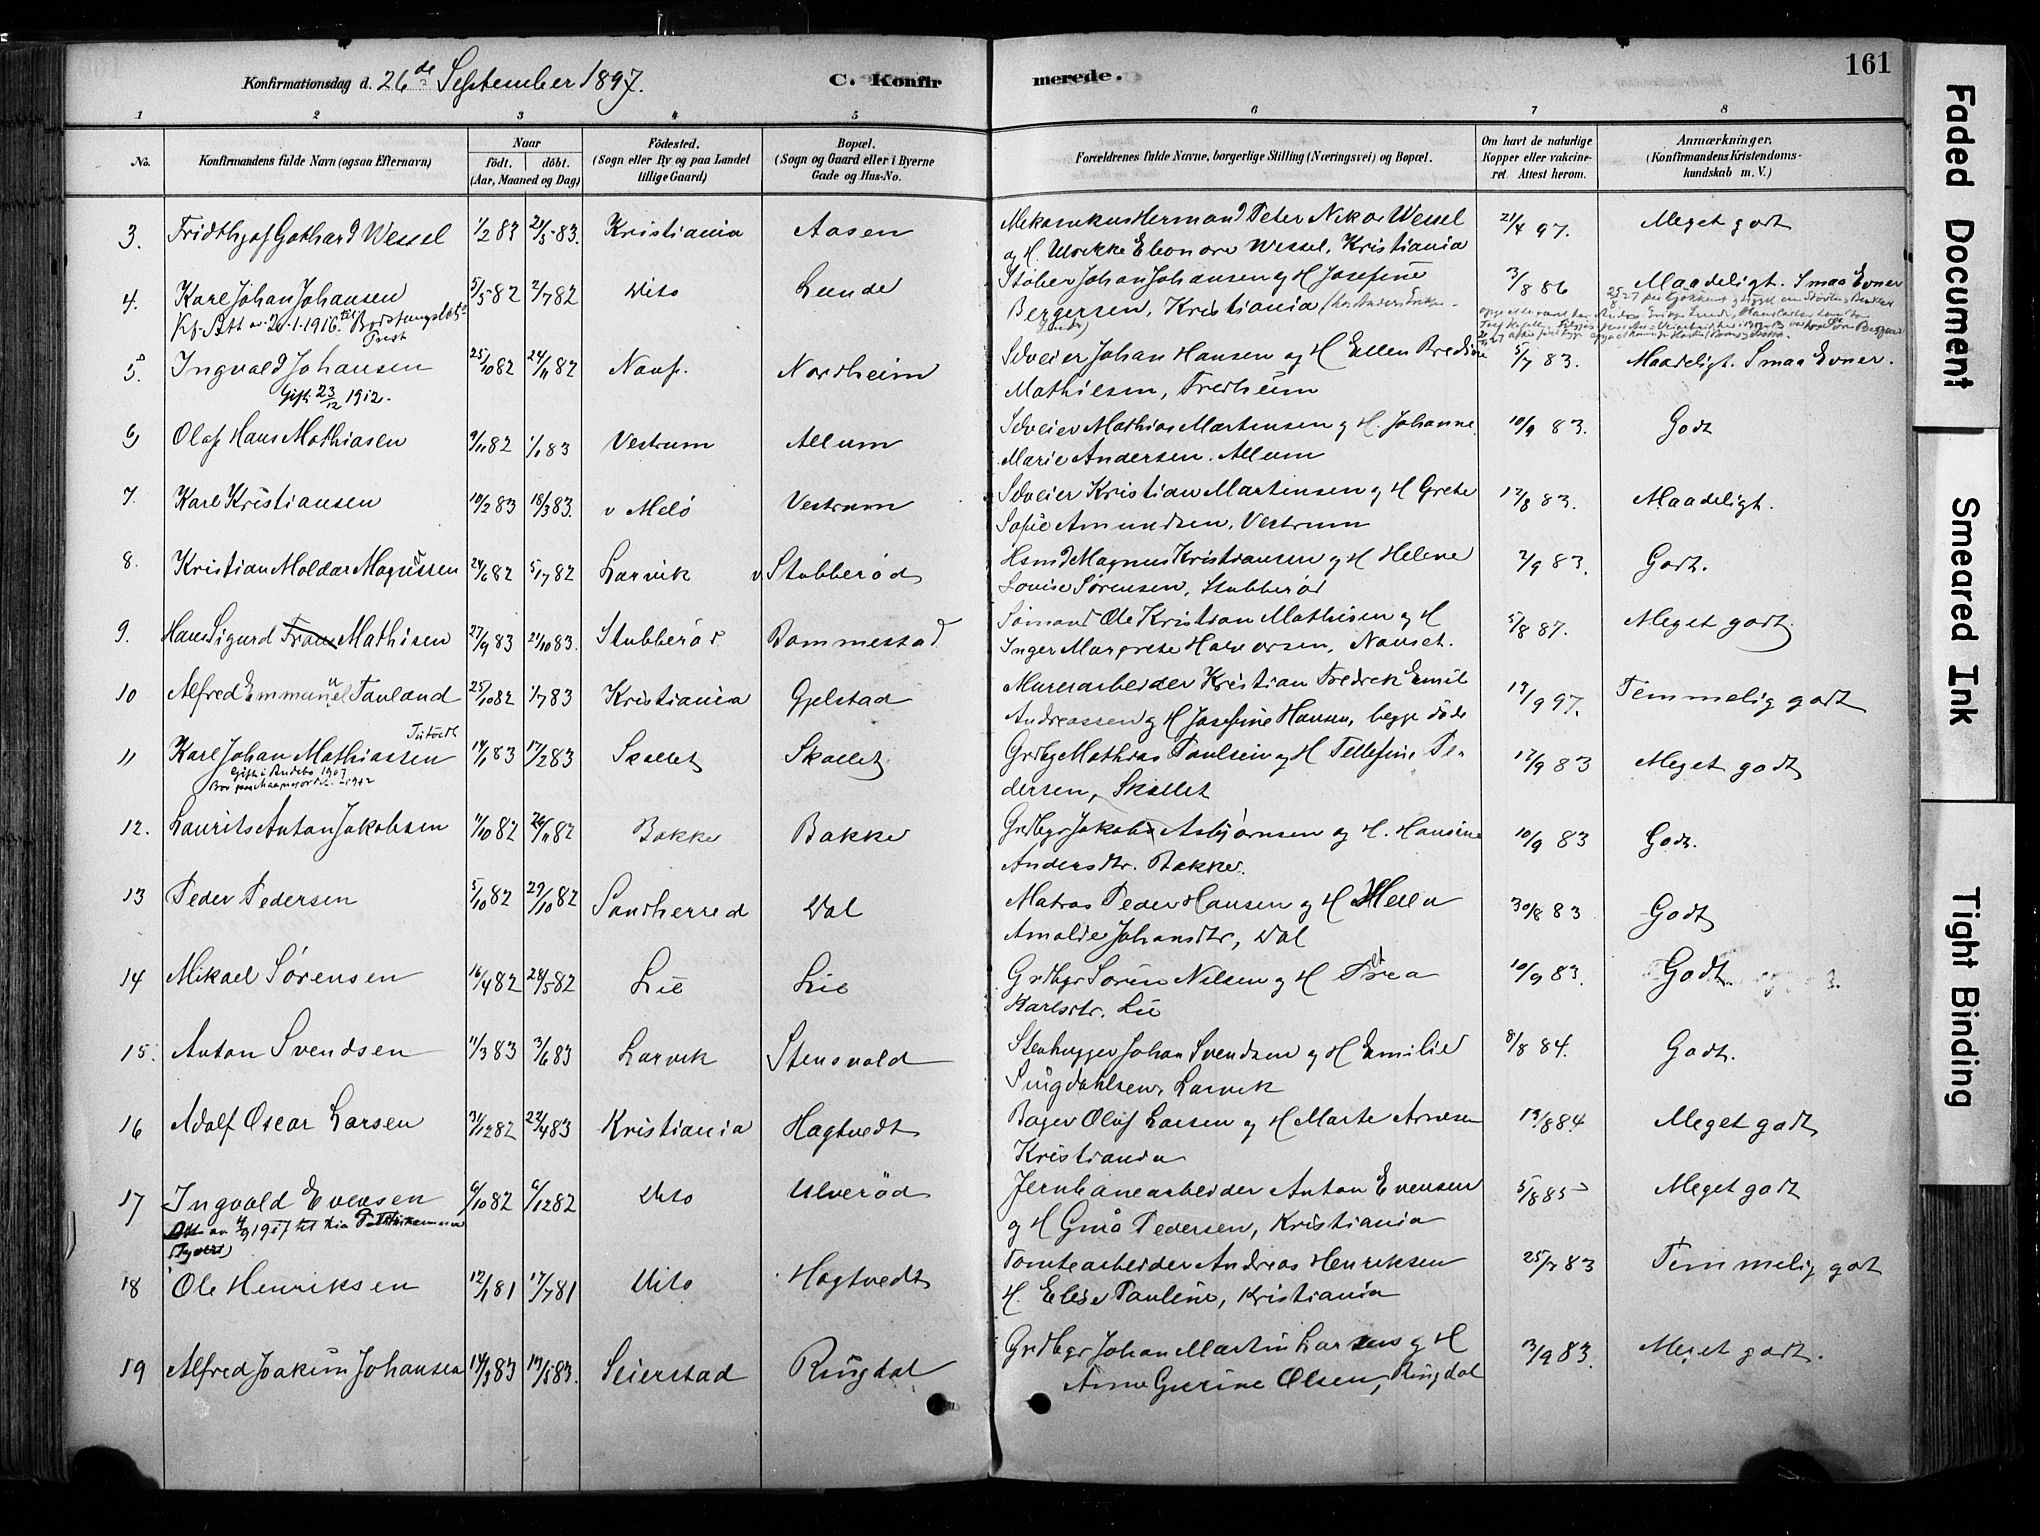 Konfirmationsdag d. 26de September 1897.
C. Konfirmerede.
161
1 2 3 4 5 6 7 8
No.
Konfirmandens fulde Navn (ogsaa Efternavn)
Naar
födt. döbt.
(Aar, Maaned og Dag)
Födested.
(Sogn eller By og paa Landet
tillige Gaard)
Bopæl.
(Sogn og Gaard eller i Byerne
Gade og Hus-No.
Forældrenes fulde Navne, borgerlige Stilling (Næringsvei) og Bopæl.
Om havt de naturlige
Kopper eller vakcine-
ret. Attest herom.
Anmærkninger.
(Konfirmandens Kristendoms-
kundskab m. V.)
3. Fridthjof Gothard Wessel 1/2 83 21/5 83. Kristiania Aasen Mekanikus Herman Peter Wessel 21/4 97. Meget godt
og H. Ulrikke Eleonore Wessel, Kristiania
4. Karl Johan Johansen 5/5 82 2/7 82 Dito Lunde Støber Johan Johansen og H Josefine 3/8 86 Maadeligt. Smaa Evner
Bergersen, Kristiania
5. Ingvald Johansen 25/10 82 24/11 82 Nordheim Selveier Johan Hansen og H Ellen Bredine 5/7 83. Maadeligt. Smaa Evner.
Gift 23/12 1912.
Mathiesen, Fredheim
6 Olaf Hans Mathiasen 9/11 82 1/1 83 Vestrum Allum Selveier Mathias Martinsen og H. Johanne 10/9 83. Godt
Marie Andersen. Allum
7. Karl Kristiansen 10/2 83 18/3 83. v Melö Vestrum Selveier Kristian Martinsen og H Grete 17/8 83. Maadeligt.
Sofie Amundsen, Vestrum
8. Kristian Moldar Magnussen 24/6 82 5/17 82 Larvik v Stubberød Hsmd Magnus Kristiansen og H Helene 2/9 83. Godt.
Louise Sørensen, Stubberød
9. Hans Sigurd Mathisen 27/9 83 21/10 83. Stubberød Bommestad Sömand Ole Kristian Mathisen og H 5/8 87. Meget godt
Inger Margrete Halvorsen, Nanset.
10 Alfred Emmanuel Tauland 25/10 82 1/7 83 Kristiania Gjelstad Murerarbeider Kristian Fredrek Emil 17/9 97. Temmelig godt
Andreassen og H Josefine Hansen, begge döde
11 Karl Johan Mathiassen 14/1 83 17/2 83 Skallet Skallet Grdbg Mathias Paulsen og H Tellefine Pe- 17/9 83 Meget godt
Gift i Andebo 1907
dersen, Skallet
12. Laurits Anton Jakobsen 11/10 82 26/11 82 Bakke Bakke Grdbgr Jakob Asbjørnsen og H. Hansine 10/9 83 Godt.
Andersdtr. Bakke.
13 Peder Pedersen 5/10 82 29/10 82 Sandherred Dal Matros Peder Hansen og H Helen 30/8 83 Godt
Amalie Johansdtr, Dal
14 Mikael Sørensen 16/4 82 28/5 82 Lie Lie Grdbgr Sören Nilsen og H 10/9 83. Godt.
Karlsdtr. Lie
15. Anton Svendsen 11/3 83 3/6 83 Larvik Stensvold Stenhugger Johan Svendsen og H Emilie 8/8 84. Godt.
Larvik
16 Adolf Oscar Larsen 31/12 82 22/4 83 Kristiania Hagtvedt Bager Oluf Larsen og H Marte Arnesen 19/8 84 Meget godt
Kristiania
17 Ingvald Evensen 6/10 82 6/12 82 Dito Ulverød Jernbanearbeider Anton Evensen 5/8 85 Meget godt
og H Gina Pedersen, Kristiania
18 Ole Henriksen 12/1 81 17/7 81 Dito Hagtvedt Tomtearbeider Andreas Henriksen 25/7 83 Temmelig got
H. Elise Pauline, Kristiania
19 Alfred Joakim Johansen 14/3 83 14/5 83. Seierstad Ringdal Grdbgr Johan Martin Larsens og H 3/9 83. Meget godt.
Anne Gurine Olsen, Ringdal
Faded Document
Smeared Ink
Tight Binding